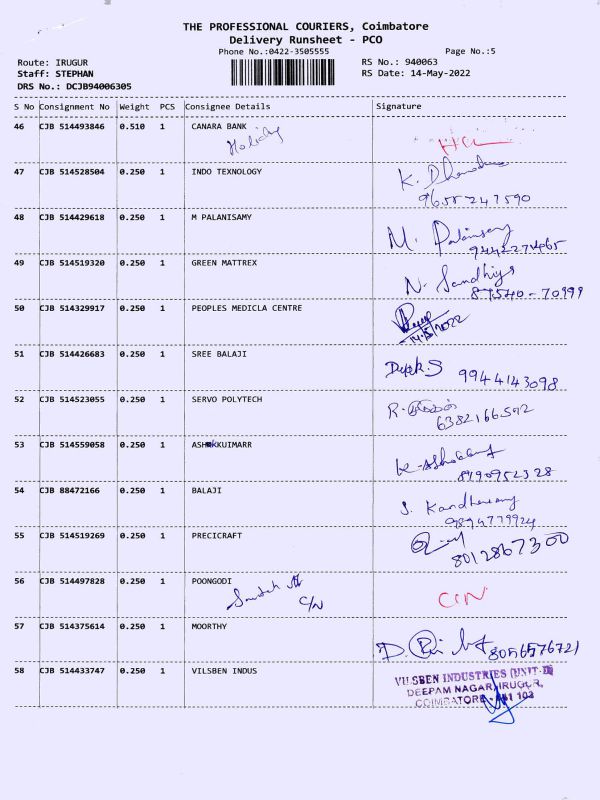 THE PROFESSIONAL COURIERS, Coimbatore
Delivery Runsheet - PCO
Phone No.:0422-3505555 Page No.:5
Route: IRUGUR RS No.: 940063
Staff: STEPHAN RS Date: 14-May-2022
DRS No.: DCJB94006305
S No Consignment No Weight PCS Consignee Details Signature
46 CJB 514493846 0.510 1 CANARA BANK
Holiday
47 CJB 514528504 0.250 1 INDO TEXNOLOGY K.
9655247590
48 CJB 514429618 0.250 1 M PALANISAMY M. Palanisamy
49 CJB 514519320 0.250 1 GREEN MATTREX N. Sandhiya
87540-70999
50 CJB 514329917 0.250 1 PEOPLES MEDICLA CENTRE
14/5/2022
51 CJB 514426683 0.250 1 SREE BALAJI Deepak.S 9944143098
52 CJB 514523055 0.250 1 SERVO POLYTECH R.
6382166592
53 CJB 514559058 0.250 1 ASHOKKUIMARR
8990952328
54 CJB 88472166 0.250 1 BALAJI S. Kandhasamy
9894779924
55 CJB 514519269 0.250 1 PRECICRAFT
8012867300
56 CJB 514497828 0.250 1 POONGODI
C/N CIN
57 CJB 514375614 0.250 1 MOORTHY D. 8056576721
58 CJB 514433747 0.250 1 VILSBEN INDUS
VILSBEN INDUSTRIES (UNIT-II)
DEEPAM NAGAR, IRUGUR,
COIMBATORE - 641 103